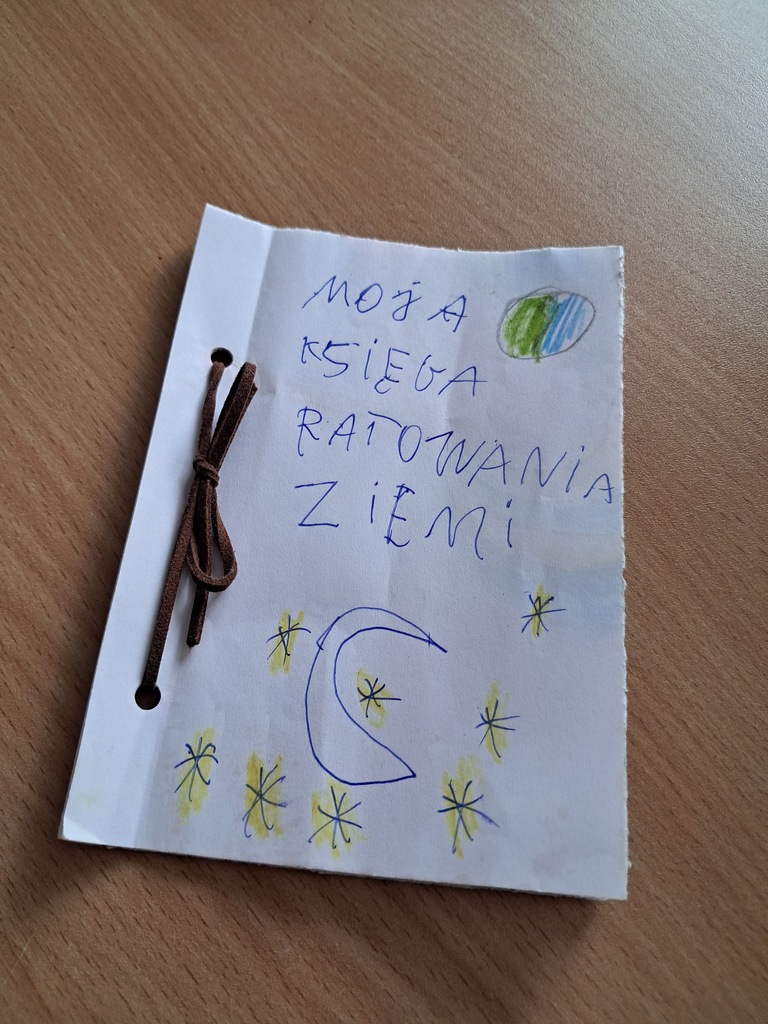 MOJA
KSIĘGA
RATOWANIA
ZIEMI